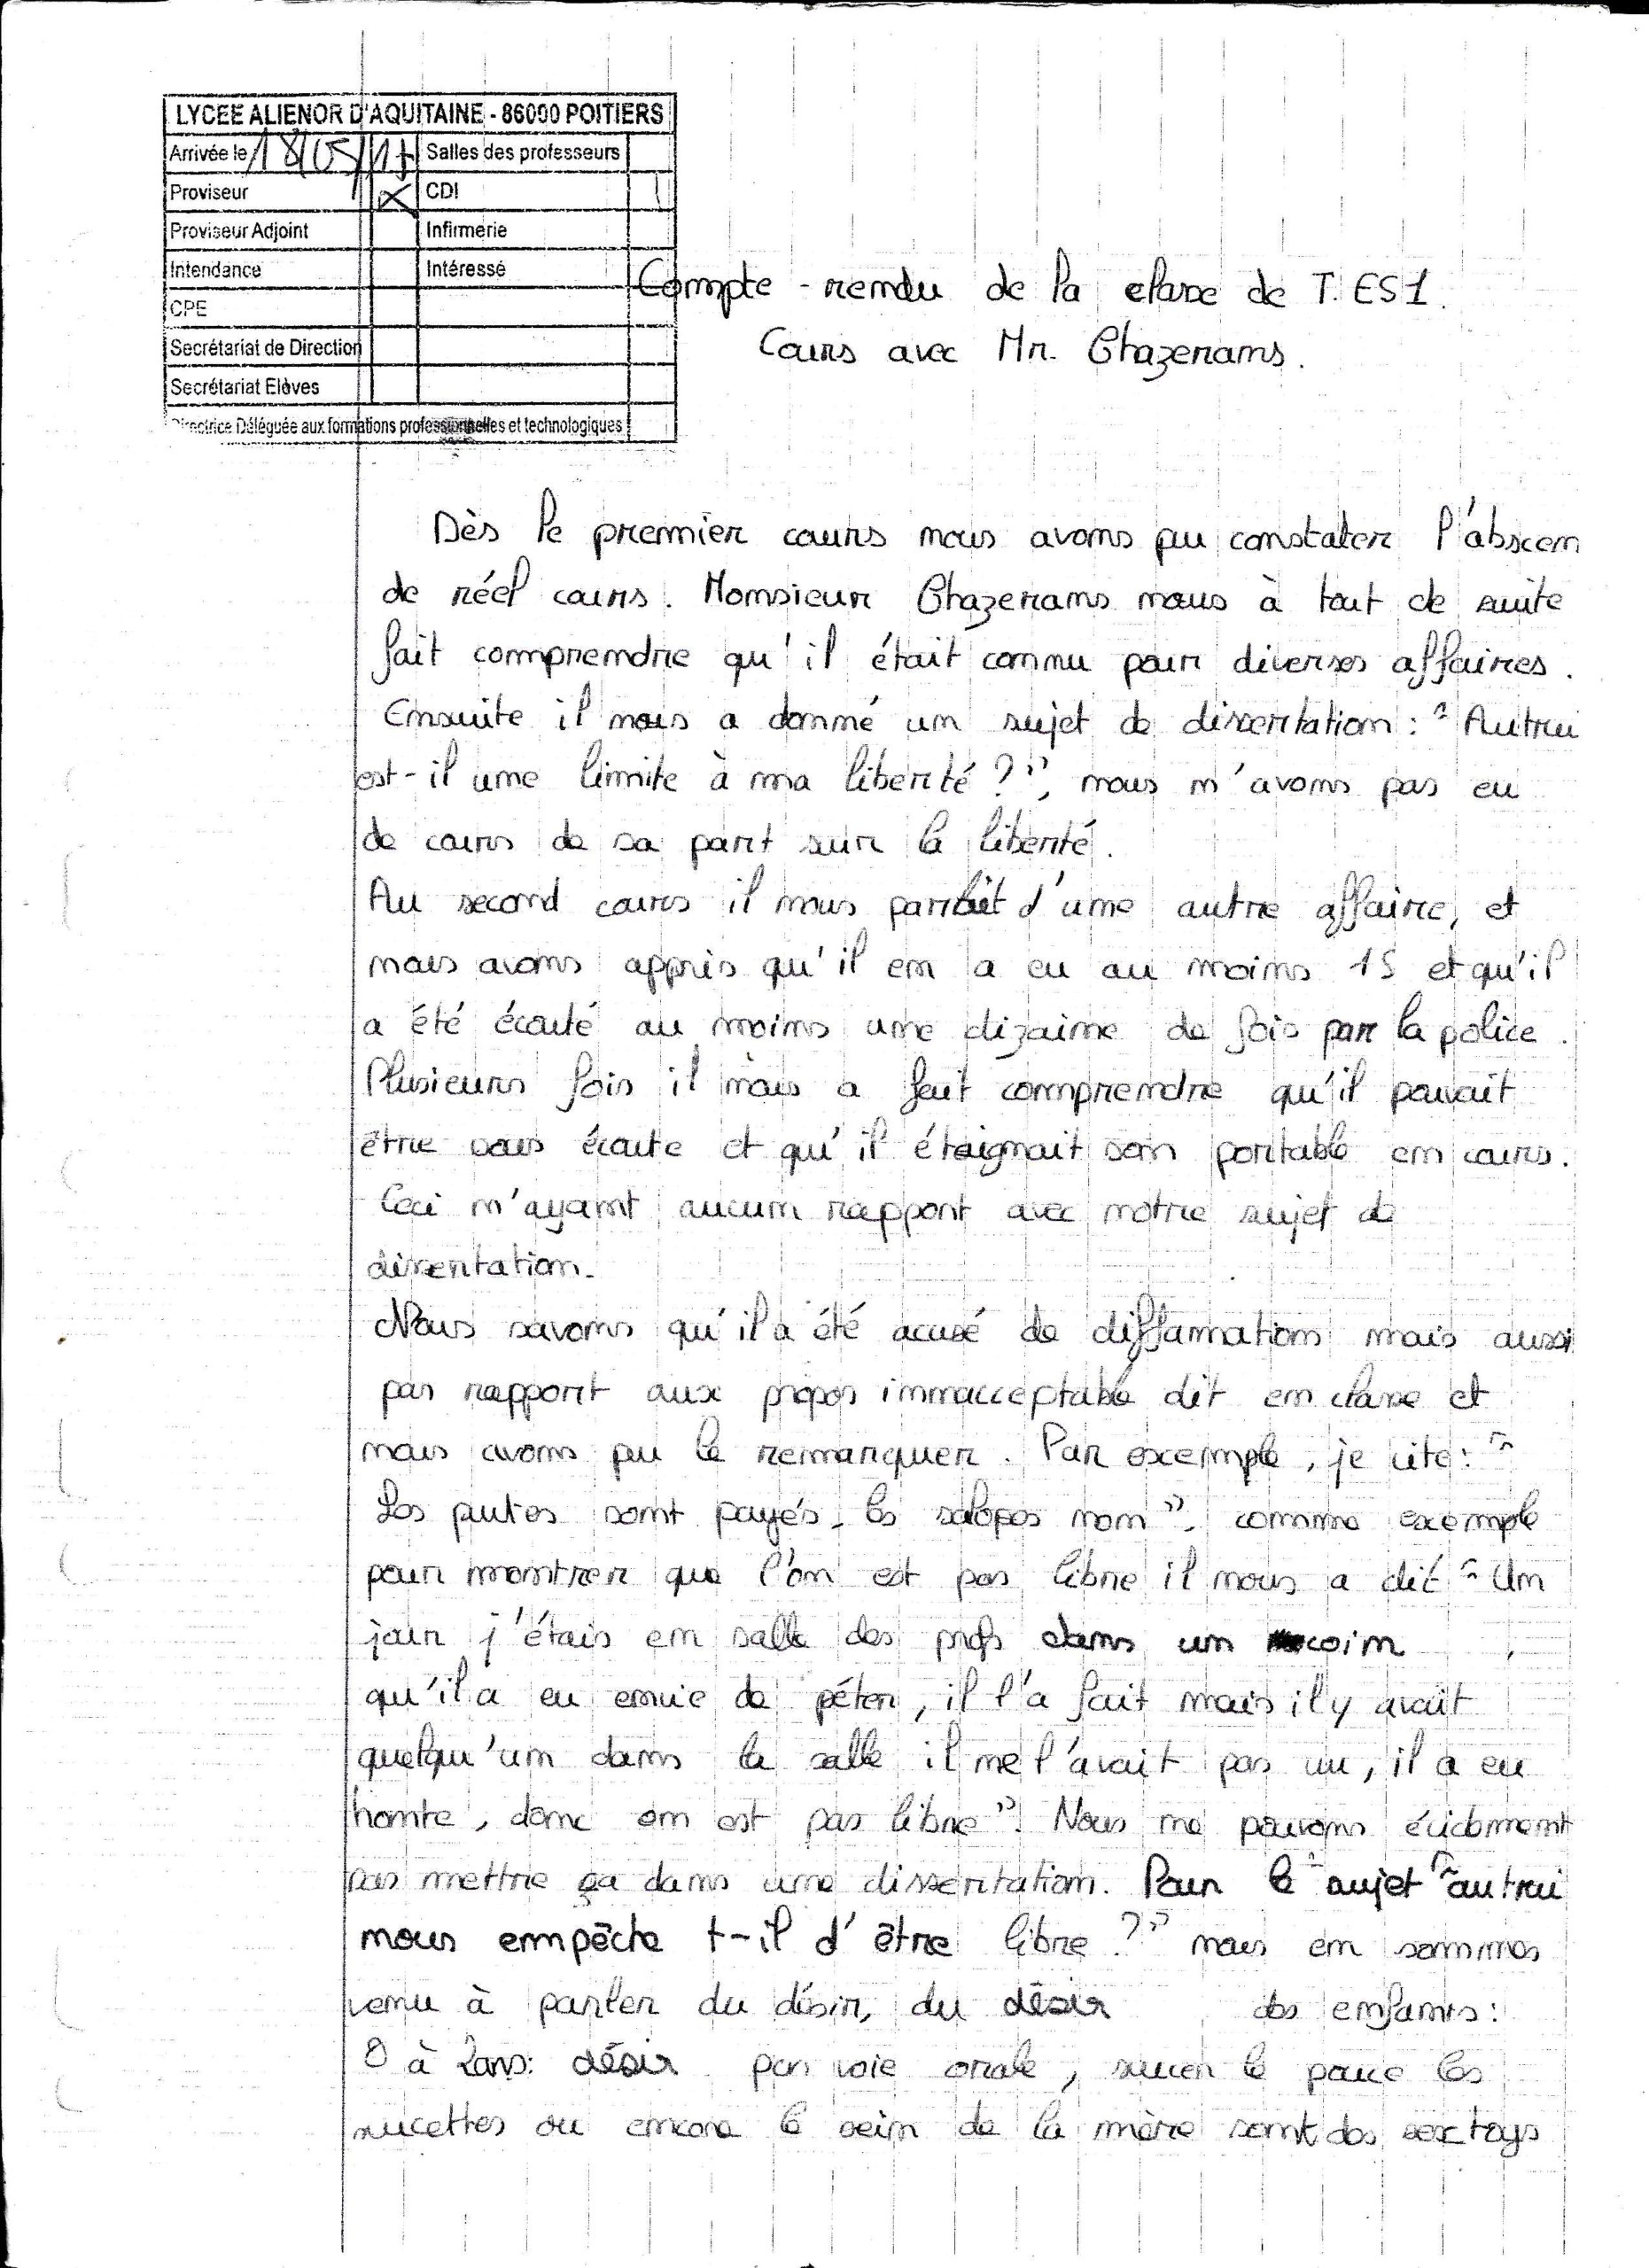 LYCEE ALIENOR D'AQUITAINE - 86000 POITIERS
Arrivée le 18/05/17 Salles des professeurs
Proviseur X CDI
Proviseur Adjoint Infirmerie
Intendance Intéressé
CPE
Secrétariat de Direction
Secrétariat Elèves
Directrice Déléguée aux formations professionnelles et technologiques
Compte-rendu de la classe de T.ES1.
Cours avec Mr. Chazerans.
Dès le premier cours nous avons pu constater l'abscen
de réel cours. Monsieur Chazerans nous à tout de suite
fait comprendre qu'il était connu pour diverses affaires.
Ensuite il nous a donné un sujet de dissertation : "Autrui
est-il une limite à ma liberté ?", nous n'avons pas eu
de cours de sa part sur la liberté.
Au second cours il nous parlait d'une autre affaire, et
nous avons appris qu'il en a eu au moins 15 et qu'il
a été écouté au moins une dizaine de fois par la police.
Plusieurs fois il nous a fait comprendre qu'il pouvait
être sous écoute et qu'il éteignait son portable en cours.
Ceci n'ayant aucun rapport avec notre sujet de
dissertation.
Nous savons qu'il a été acusé de diffamations mais aussi
par rapport aux propos innacceptable dit en classe et
nous avons pu le remarquer. Par excemple, je cite : "
Les putes sont payés, les salopes non", comme exemple
pour montrer que l'on est pas libre il nous a dit "Un
jour j'étais en salle des profs dans un coin ,
qu'il a eu envie de péter, il l'a fait mais il y avait
quelqu'un dans la salle il ne l'avait pas vu, il a eu
honte, donc on est pas libre". Nous ne pouvons évidemment
pas mettre ça dans une dissertation. Pour le sujet "autrui
nous empêche t-il d'être libre ?" nous en sommes
venu à parler du désir, du désir des enfants :
0 à 2ans : désir par voie orale, sucer le pouce les
sucettes ou encore le sein de la mère sont des sextoys